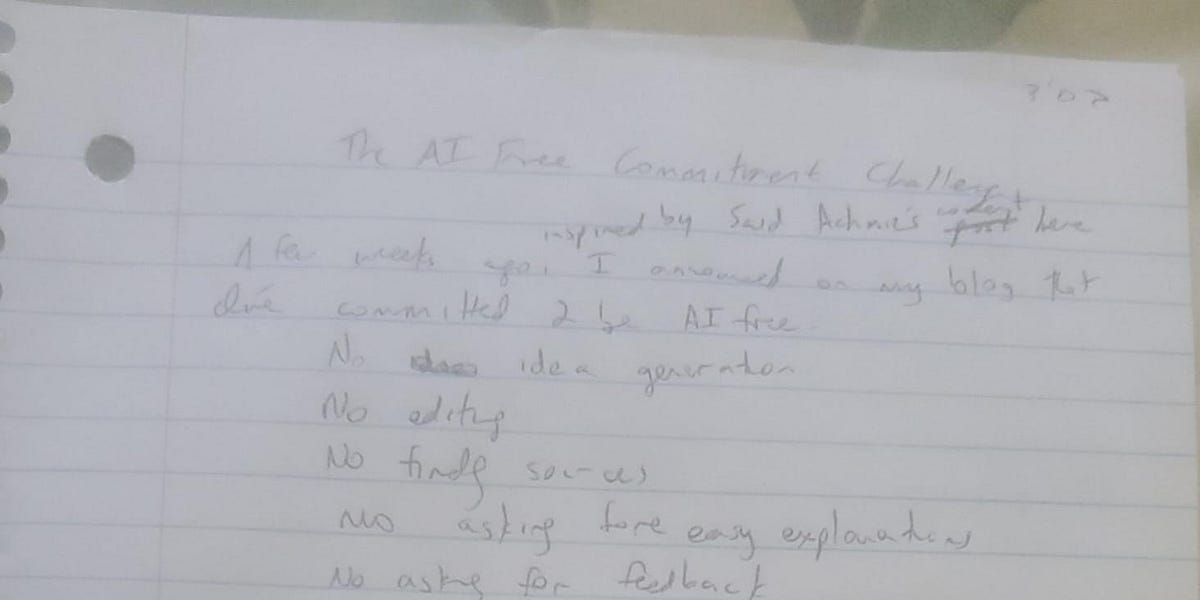 The AI Free Commitment Challenge
inspired by Said Achmiz's content post here
A few weeks ago, I announced on my blog that
I've committed 2 be AI free.
No idea generation
No editing
No finding sources
No asking fore easy explanations
No asking for feedback